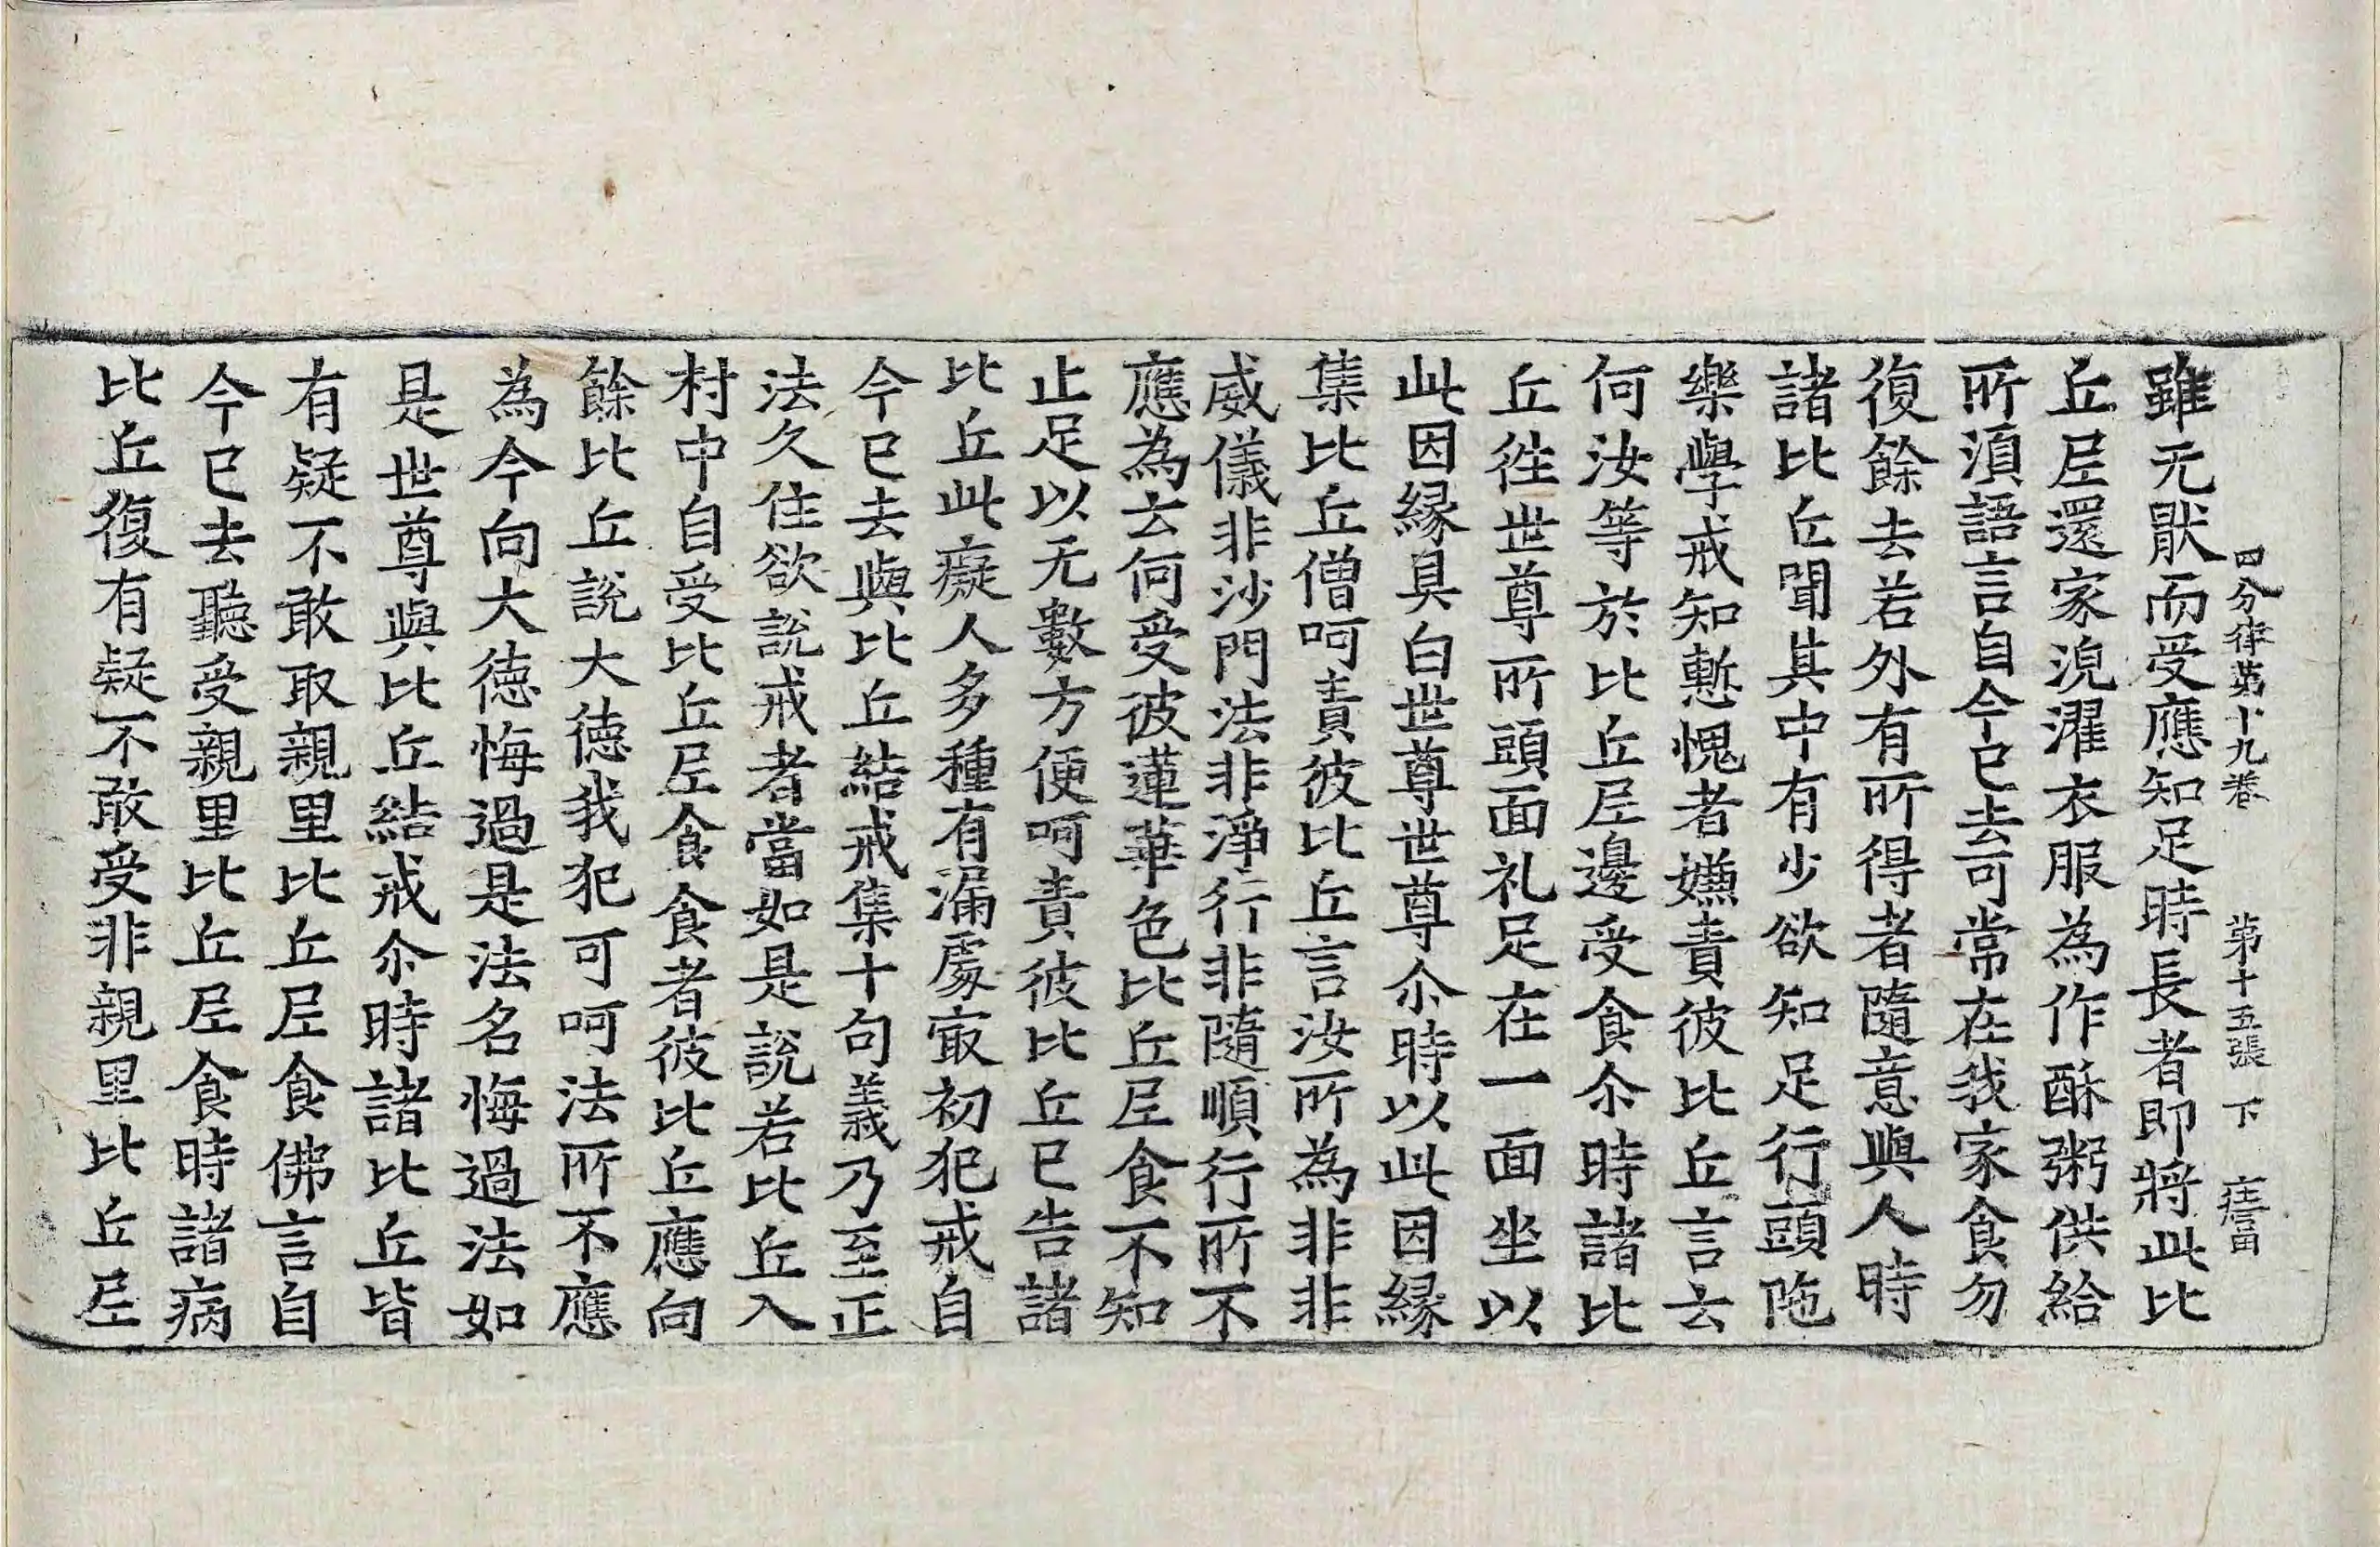 四分律第十九卷 第十五張 下
雖无猒而受應知足時長者即將此比
丘尼還家浣濯衣服為作酥粥供給
所湏語言自今已去可常在我家食勿
復餘去若外有所得者隨意與人時
諸比丘聞其中有少欲知足行頭陁
樂學戒知慙愧者嫌責彼比丘言云
何汝等於比丘尼邊受食尒時諸比
丘徃世尊所頭面礼足在一面坐以
此因縁具白世尊世尊尒時以此因縁
集比丘僧呵責彼比丘言汝所為非非
威儀非沙門法非淨行非隨順行所不
應為云何受彼蓮華色比丘尼食不知
止足以无數方便呵責彼比丘已告諸
比丘此癡人多種有漏處㝡初犯戒自
今已去與比丘結戒集十句義乃至正
法久住欲說戒者當如是說若比丘入
村中自受比丘尼食食者彼比丘應向
餘比丘說大徳我犯可呵法所不應
為今向大徳悔過是法名悔過法如
是世尊與比丘結戒尒時諸比丘皆
有疑不敢取親里比丘尼食佛言自
今已去聽受親里比丘尼食時諸病
比丘復有疑不敢受非親里比丘尼